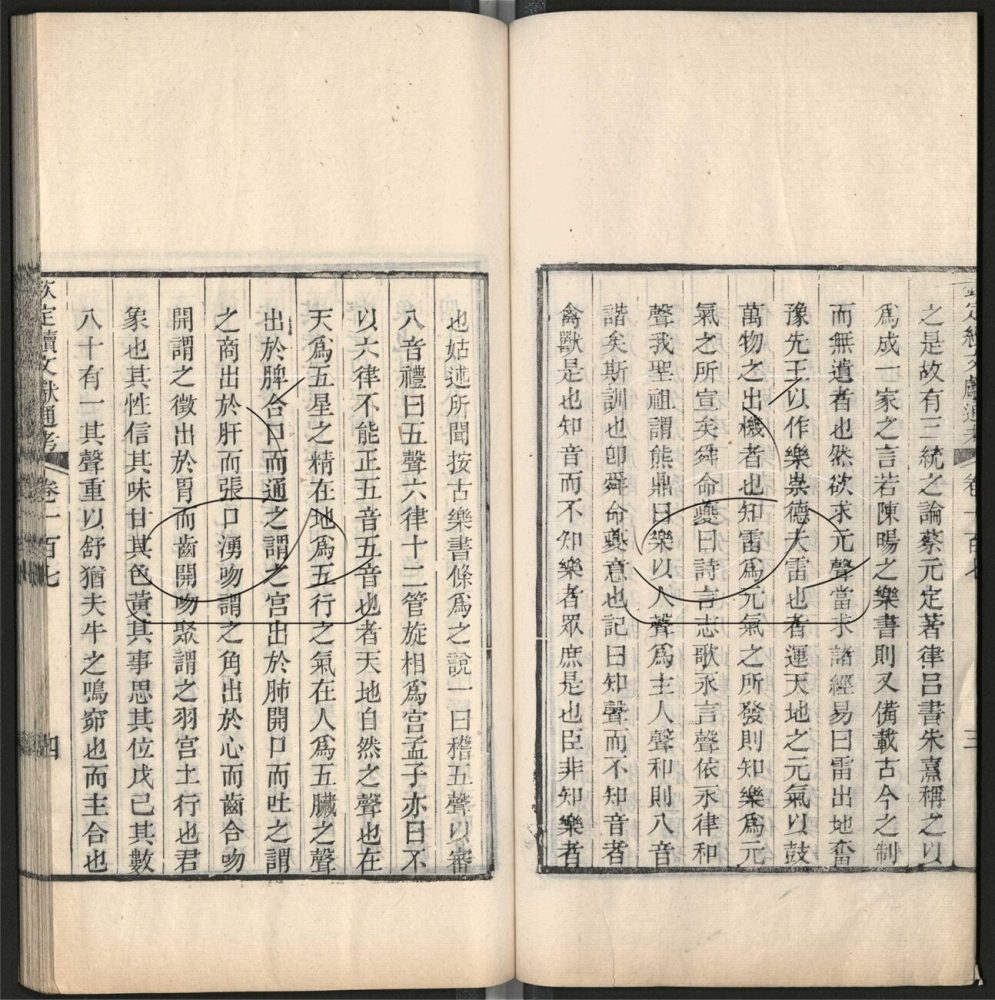 欽定續文獻通考 卷一百七 三
之是故有三統之論蔡元定著律呂書朱熹稱之以
爲成一家之言若陳暘之樂書則又備載古今之制
而無遺者也然欲求元聲當求諸經易曰雷出地奮
豫先王以作樂崇德夫雷也者運天地之元氣以鼓
萬物之出機者也知雷爲元氣之所發則知樂爲元
氣之所宣矣舜命夔曰詩言志歌永言聲依永律和
聲我聖祖謂熊鼎曰樂以人聲爲主人聲和則八音
諧矣斯訓也卽舜命夔意也記曰知聲而不知音者
禽獸是也知音而不知樂者眾庶是也臣非知樂者
也姑述所聞按古樂書條爲之說一曰稽五聲以審
八音禮曰五聲六律十二管旋相爲宮孟子亦曰不
以六律不能正五音五音也者天地自然之聲也在
天爲五星之精在地爲五行之氣在人爲五臟之聲
出於脾合口而通之謂之宮出於肺開口而吐之謂
之商出於肝而張口湧吻謂之角出於心而齒合吻
開謂之徵出於胃而齒開吻聚謂之羽宮土行也君
象也其性信其味甘其色黃其事思其位戊己其數
八十有一其聲重以舒猶夫牛之鳴窌也而主合也
欽定續文獻通考 卷一百七 四